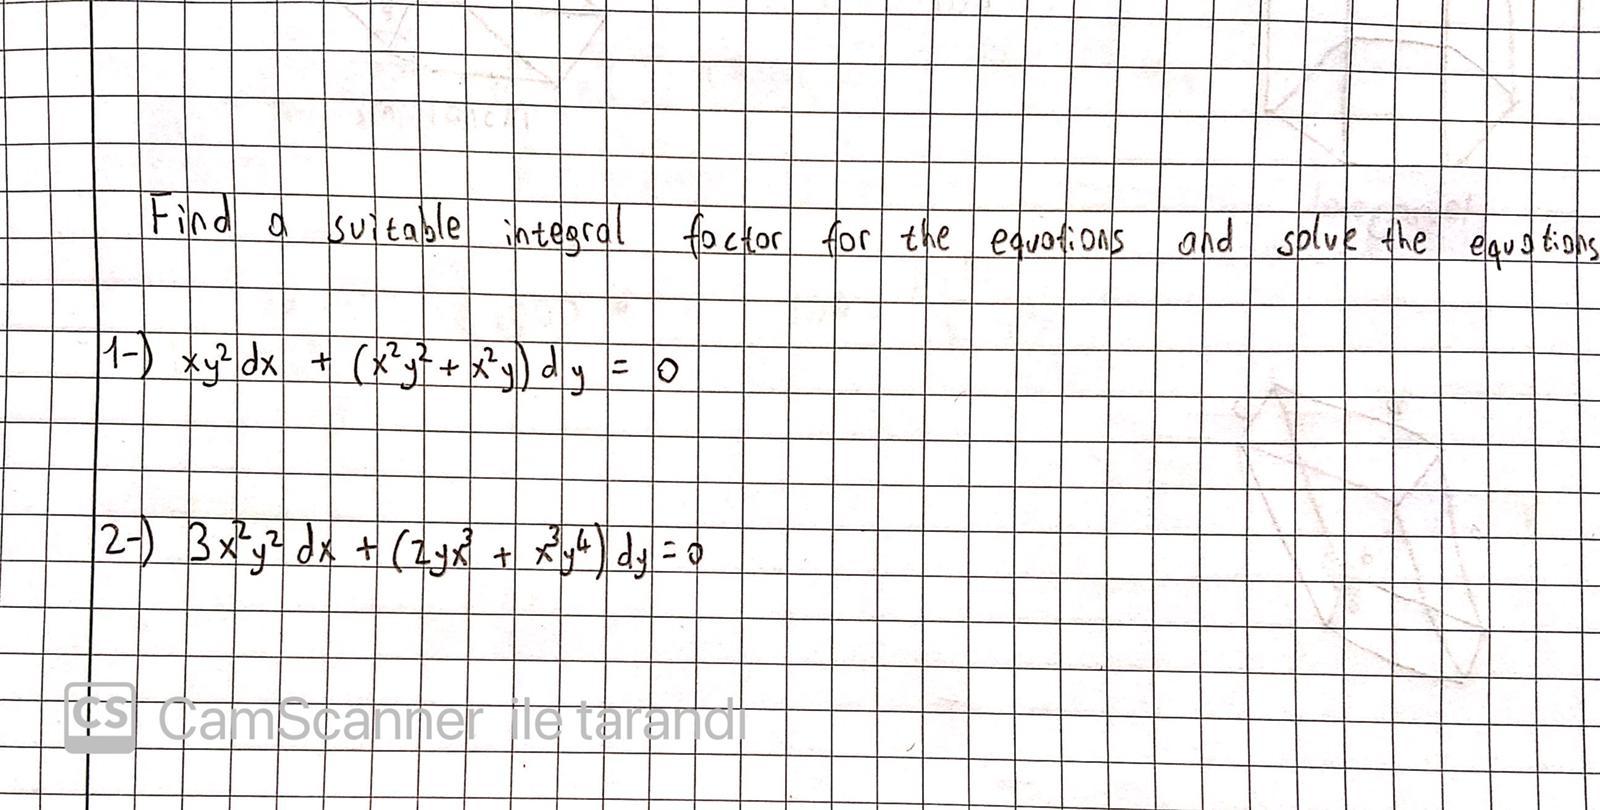 Find a suitable integral factor for the equations and solve the equations
1-) xy² dx + (x²y² + x²y) dy = 0
2-) 3x²y² dx + (2yx³ + x³y⁴) dy = 0
CS CamScanner ile tarandı